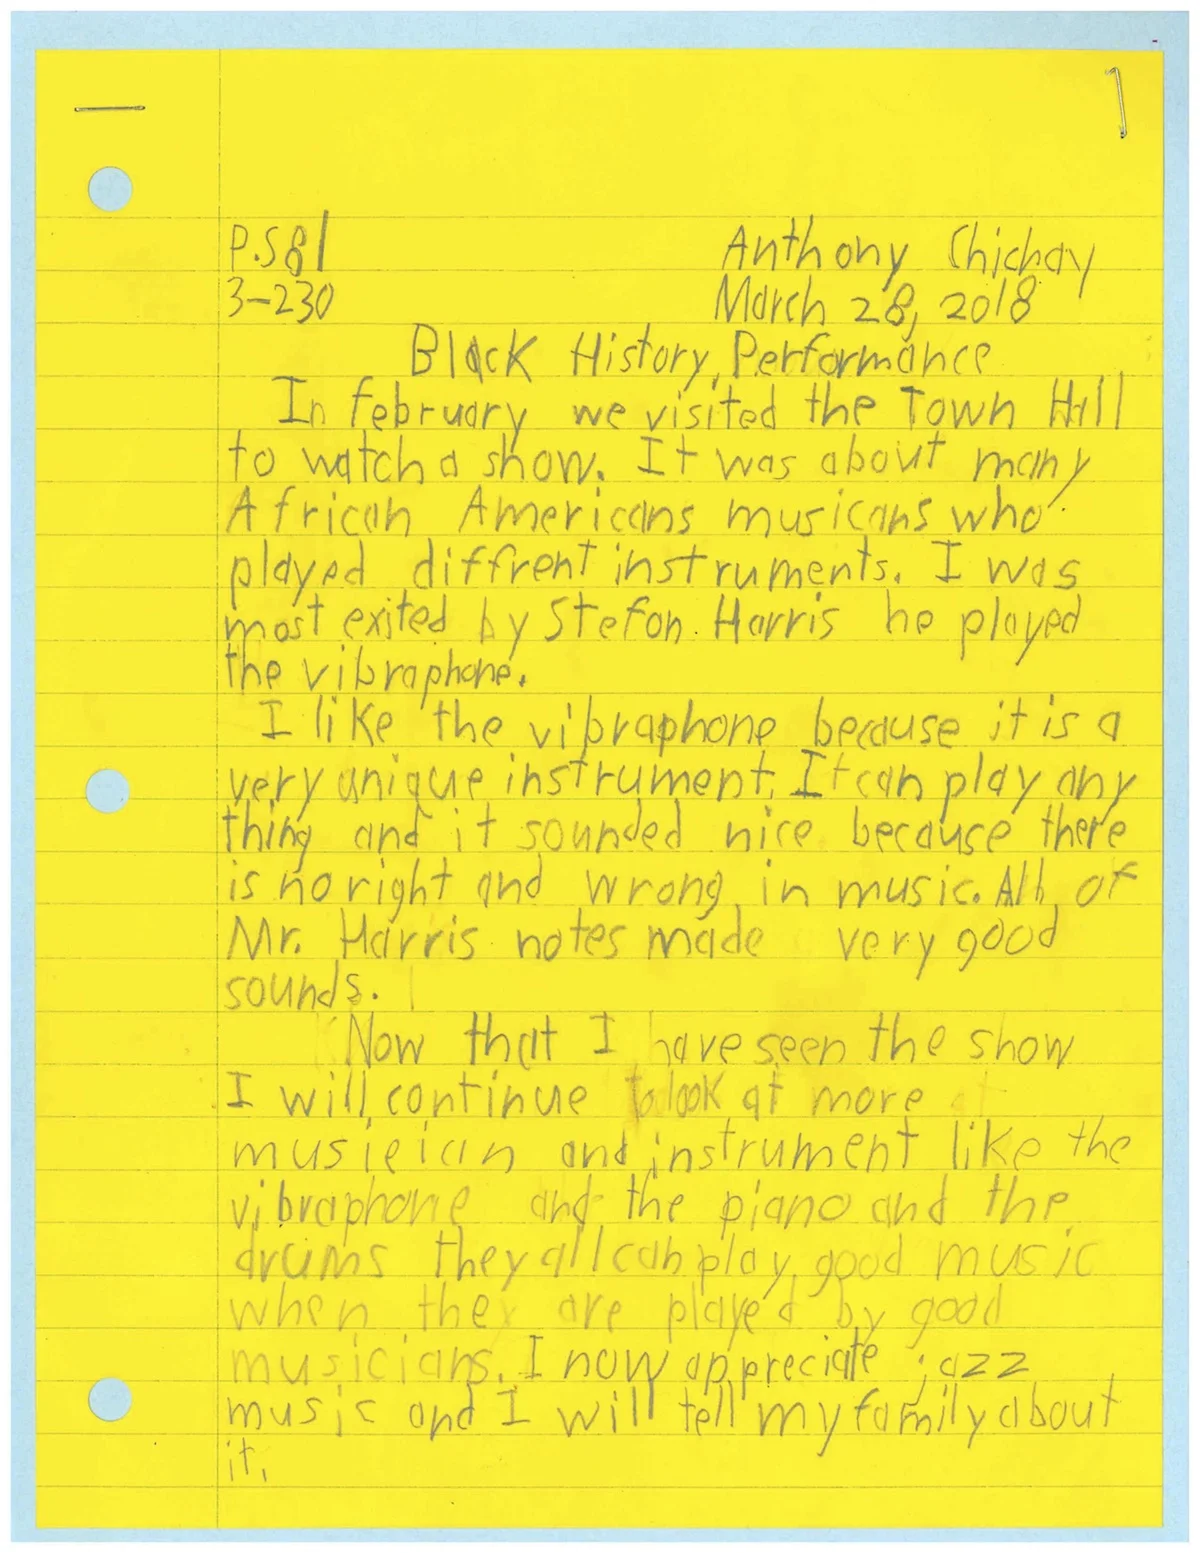 P.S81 Anthony Chichay
3-230 March 28, 2018
Black History Performance
In february we visited the Town Hall
to watch a show. It was about many
African Americans musicans who
played diffrent instruments. I was
most exited by Stefon Harris he played
the vibraphone.
I like the vibraphone because it is a
very unique instrument. It can play any
thing and it sounded nice because there
is no right and wrong in music. All of
Mr. Harris notes made very good
sounds.
Now that I have seen the show
I will continue to look at more
musieian and instrument like the
vibraphone and the piano and the
drums they all can play good music
when they are played by good
musicians. I now appreciate jazz
music and I will tell my family about
it.